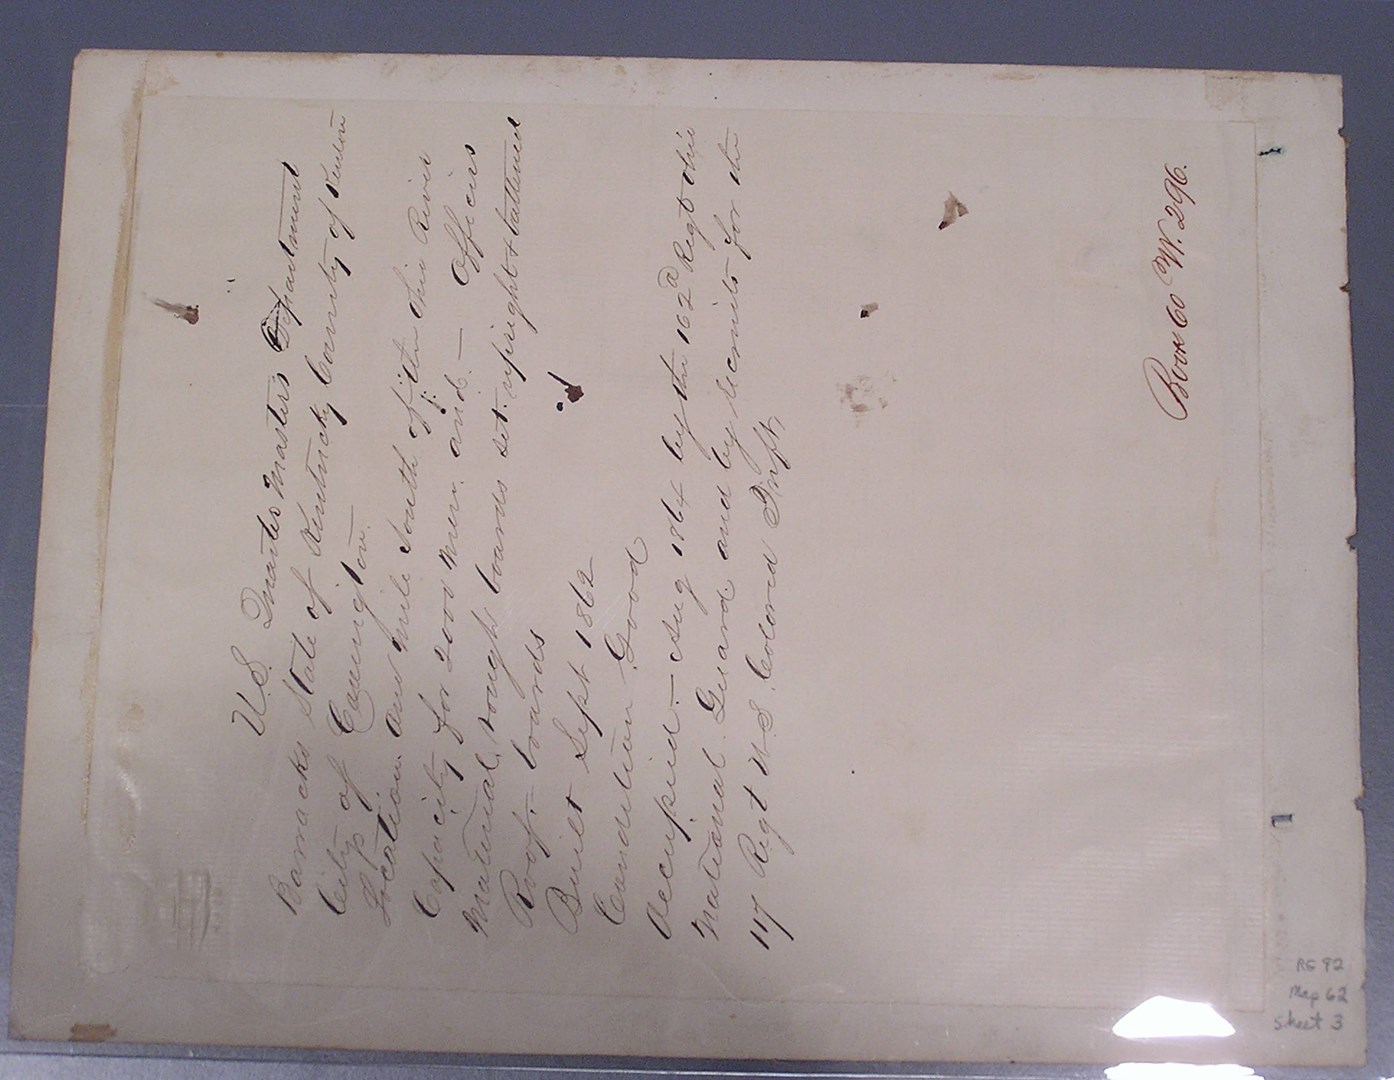 U.S. Quarter Master's Department
Barracks State of Kentucky County of Kenton
City of Covington
Location. One mile South of the Ohio River
Capacity for 2000 men and — Officers
Material, rough boards set upright & battened
Roof - boards
Built Sept 1862
Condition Good
Occupied - Aug 1864 by the 162d Regt Ohio
National Guard and by recruits for the
117 Regt U.S. Colored Inft,
Book 60 W. 296.
RG 92
Map 62
Sheet 3